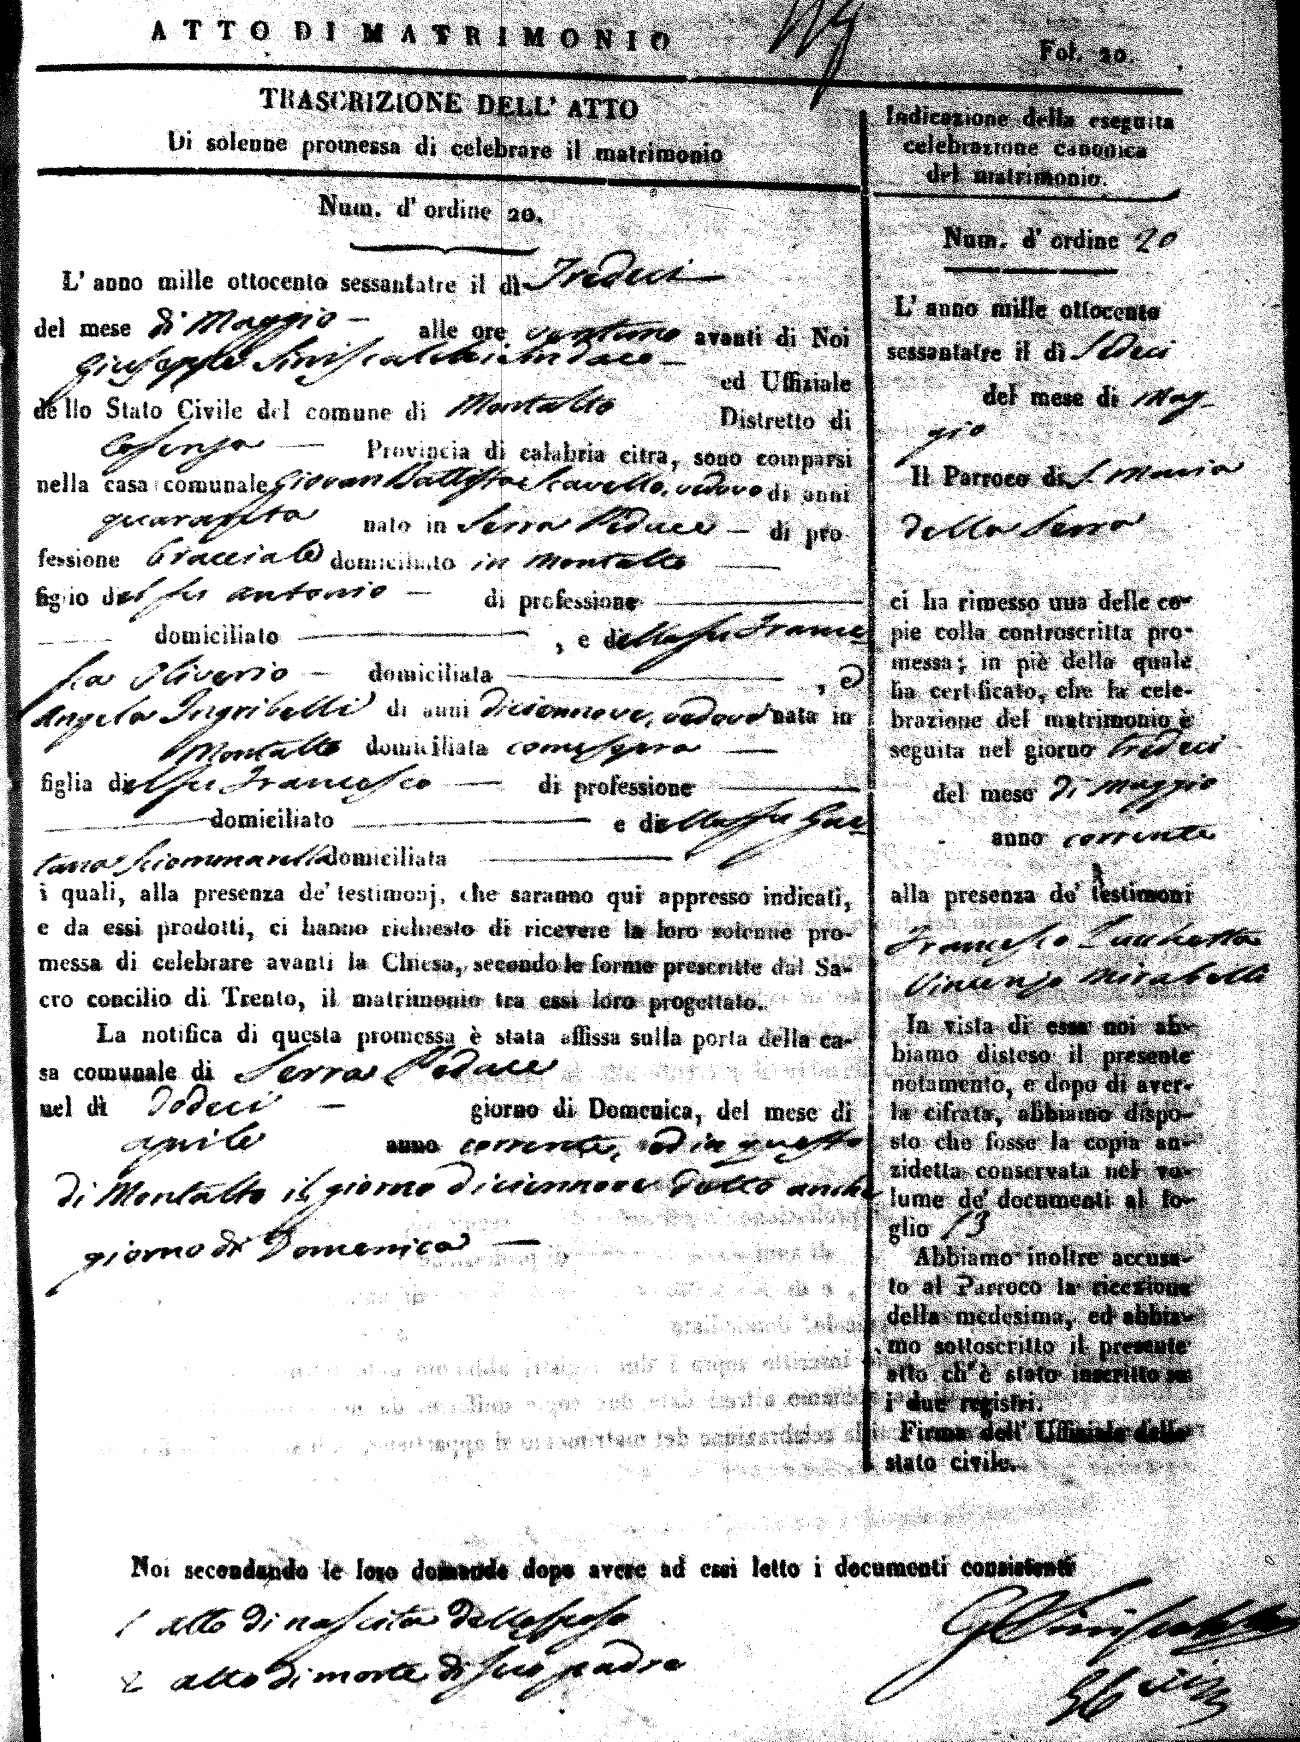 ATTO DI MATRIMONIO
Fol. 20.
TRASCRIZIONE DELL' ATTO
Di solenne promessa di celebrare il matrimonio
Num. d' ordine 20.
L' anno mille ottocento sessantatre il dì Tredeci
del mese di Maggio alle ore ventuno avanti di Noi
Giuseppe Siniscalchi Sindaco
ed Uffiziale
dello Stato Civile del comune di Montalto Distretto di
Cosenza Provincia di calabria citra, sono comparsi
nella casa comunale Giovan Battista Scavello, vedovo di anni
quaranta nato in Serra Pedace di pro
fessione bracciale domiciliato in Montalto
figlio del fu Antonio di professione
domiciliato , e della fu France
sca Oliverio domiciliata , e
Angela Ingribelli di anni diciannove, vedova nata in
Montalto domiciliata come sopra
figlia del fu Francesco di professione
domiciliato e della fu Gae
tana Sciommarella domiciliata
i quali, alla presenza de' testimonj, che saranno qui appresso indicati,
e da essi prodotti, ci hanno richiesto di ricevere la loro solenne pro-
messa di celebrare avanti la Chiesa, secondo le forme prescritte dal Sa-
cro concilio di Trento, il matrimonio tra essi loro progettato.
La notifica di questa promessa è stata affissa sulla porta della ca-
sa comunale di Serra Pedace
nel dì Dodeci giorno di Domenica, del mese di
aprile anno corrente, ed in questa
di Montalto il giorno diciannove detto anche
giorno di Domenica
Noi secondando le loro domande dopo avere ad essi letto i documenti consistenti
1 atto di nascita dello sposo
2 atto di morte di suo padre
Indicazione della eseguita
celebrazione canonica
del matrimonio.
Num. d' ordine 20
L' anno mille ottocento
sessantatre il dì Sedeci
del mese di Mag-
gio
Il Parroco di S. Maria
della Serra
ci ha rimesso una delle co-
pie colla controscritta pro-
messa; in piè della quale
ha certificato, che la cele-
brazione del matrimonio è
seguita nel giorno tredeci
del mese di Maggio
anno corrente
alla presenza de' testimoni
Francesco Lucchetta
Vincenzo Mirabelli
In vista di essa noi ab-
biamo disteso il presente
notamento, e dopo di aver-
la cifrata, abbiamo dispo-
sto che fosse la copia an-
zidetta conservata nel vo-
lume de' documenti al fo-
glio 13
Abbiamo inoltre accusa-
to al Parroco la ricezione
della medesima, ed abbia-
mo sottoscritto il presente
atto ch' è stato inscritto su
i due registri.
Firma dell' Uffiziale dello
stato civile.